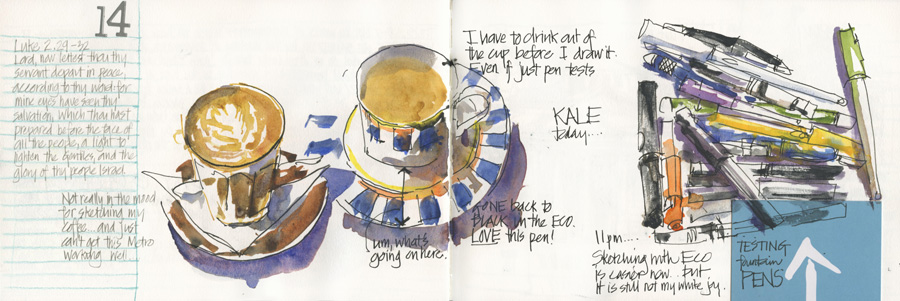 14
Luke 2.29-32
Lord, now lettest thou thy
servant depart in peace,
according to thy word: for
mine eyes have seen thy
salvation, which thou hast
prepared before the face of
all the people, a light to
lighten the Gentiles, and the
glory of thy people Israel.
Not really in the mood
for sketching my
coffee... and just
can't get this Metro
working well
I have to drink out of
the cup before I draw it.
Even if just pen tests
KALE
today....
um, what's
going on here.
GONE back to
BLACK in the ECO.
LOVE this pen!
11pm....
Sketching with ECO
is easier now... but
it is still not my white joy.
TESTING
fountain
PENS